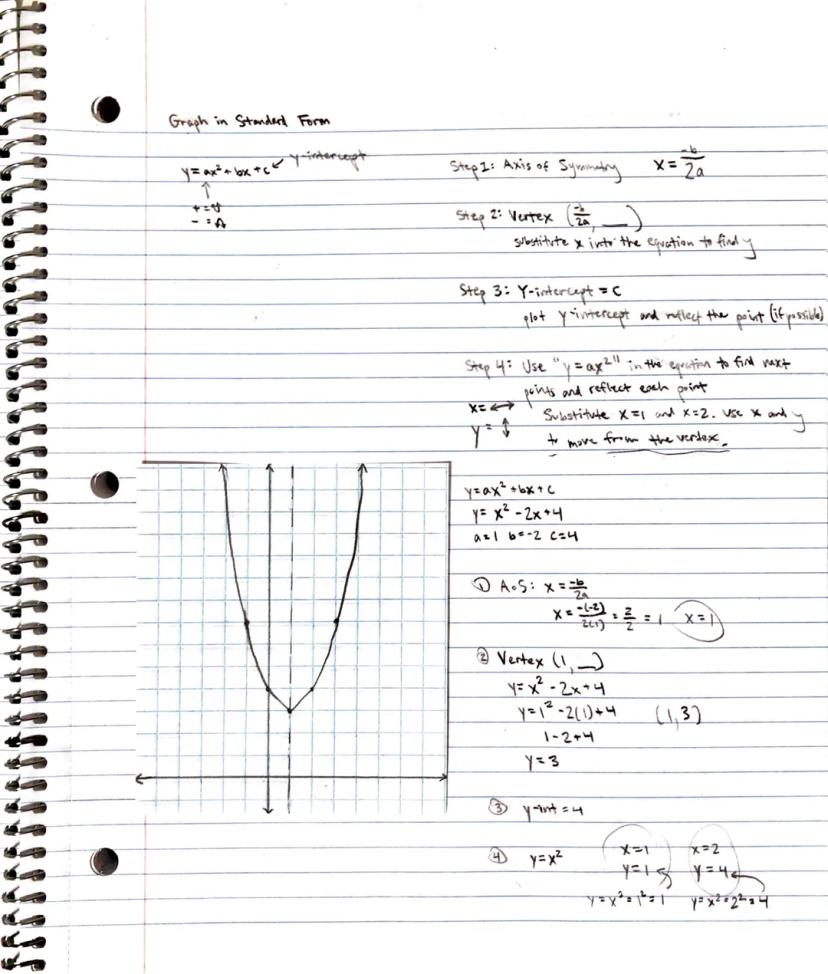 Graph in Standard Form
y = ax² + bx + c ↙ y-intercept
↑
+ = U
- = ∩
Step 1: Axis of Symmetry x = -b/2a
Step 2: Vertex (-b/2a, __)
substitute x into the equation to find y
Step 3: Y-intercept = c
plot y-intercept and reflect the point (if possible)
Step 4: Use "y = ax²" in the equation to find next
points and reflect each point
x = ↔ Substitute x=1 and x=2. Use x and y
y = ↕ to move from the vertex.
y = ax² + bx + c
y = x² - 2x + 4
a=1 b=-2 c=4
① A.o.S: x = -b/2a
x = -(-2)/2(1) = 2/2 = 1 x=1
② Vertex (1, __)
y = x² - 2x + 4
y = 1² - 2(1) + 4 (1,3)
1 - 2 + 4
y = 3
③ y-int = 4
④ y = x² x=1 x=2
y=1 y=4
y = x² = 1² = 1 y = x² = 2² = 4